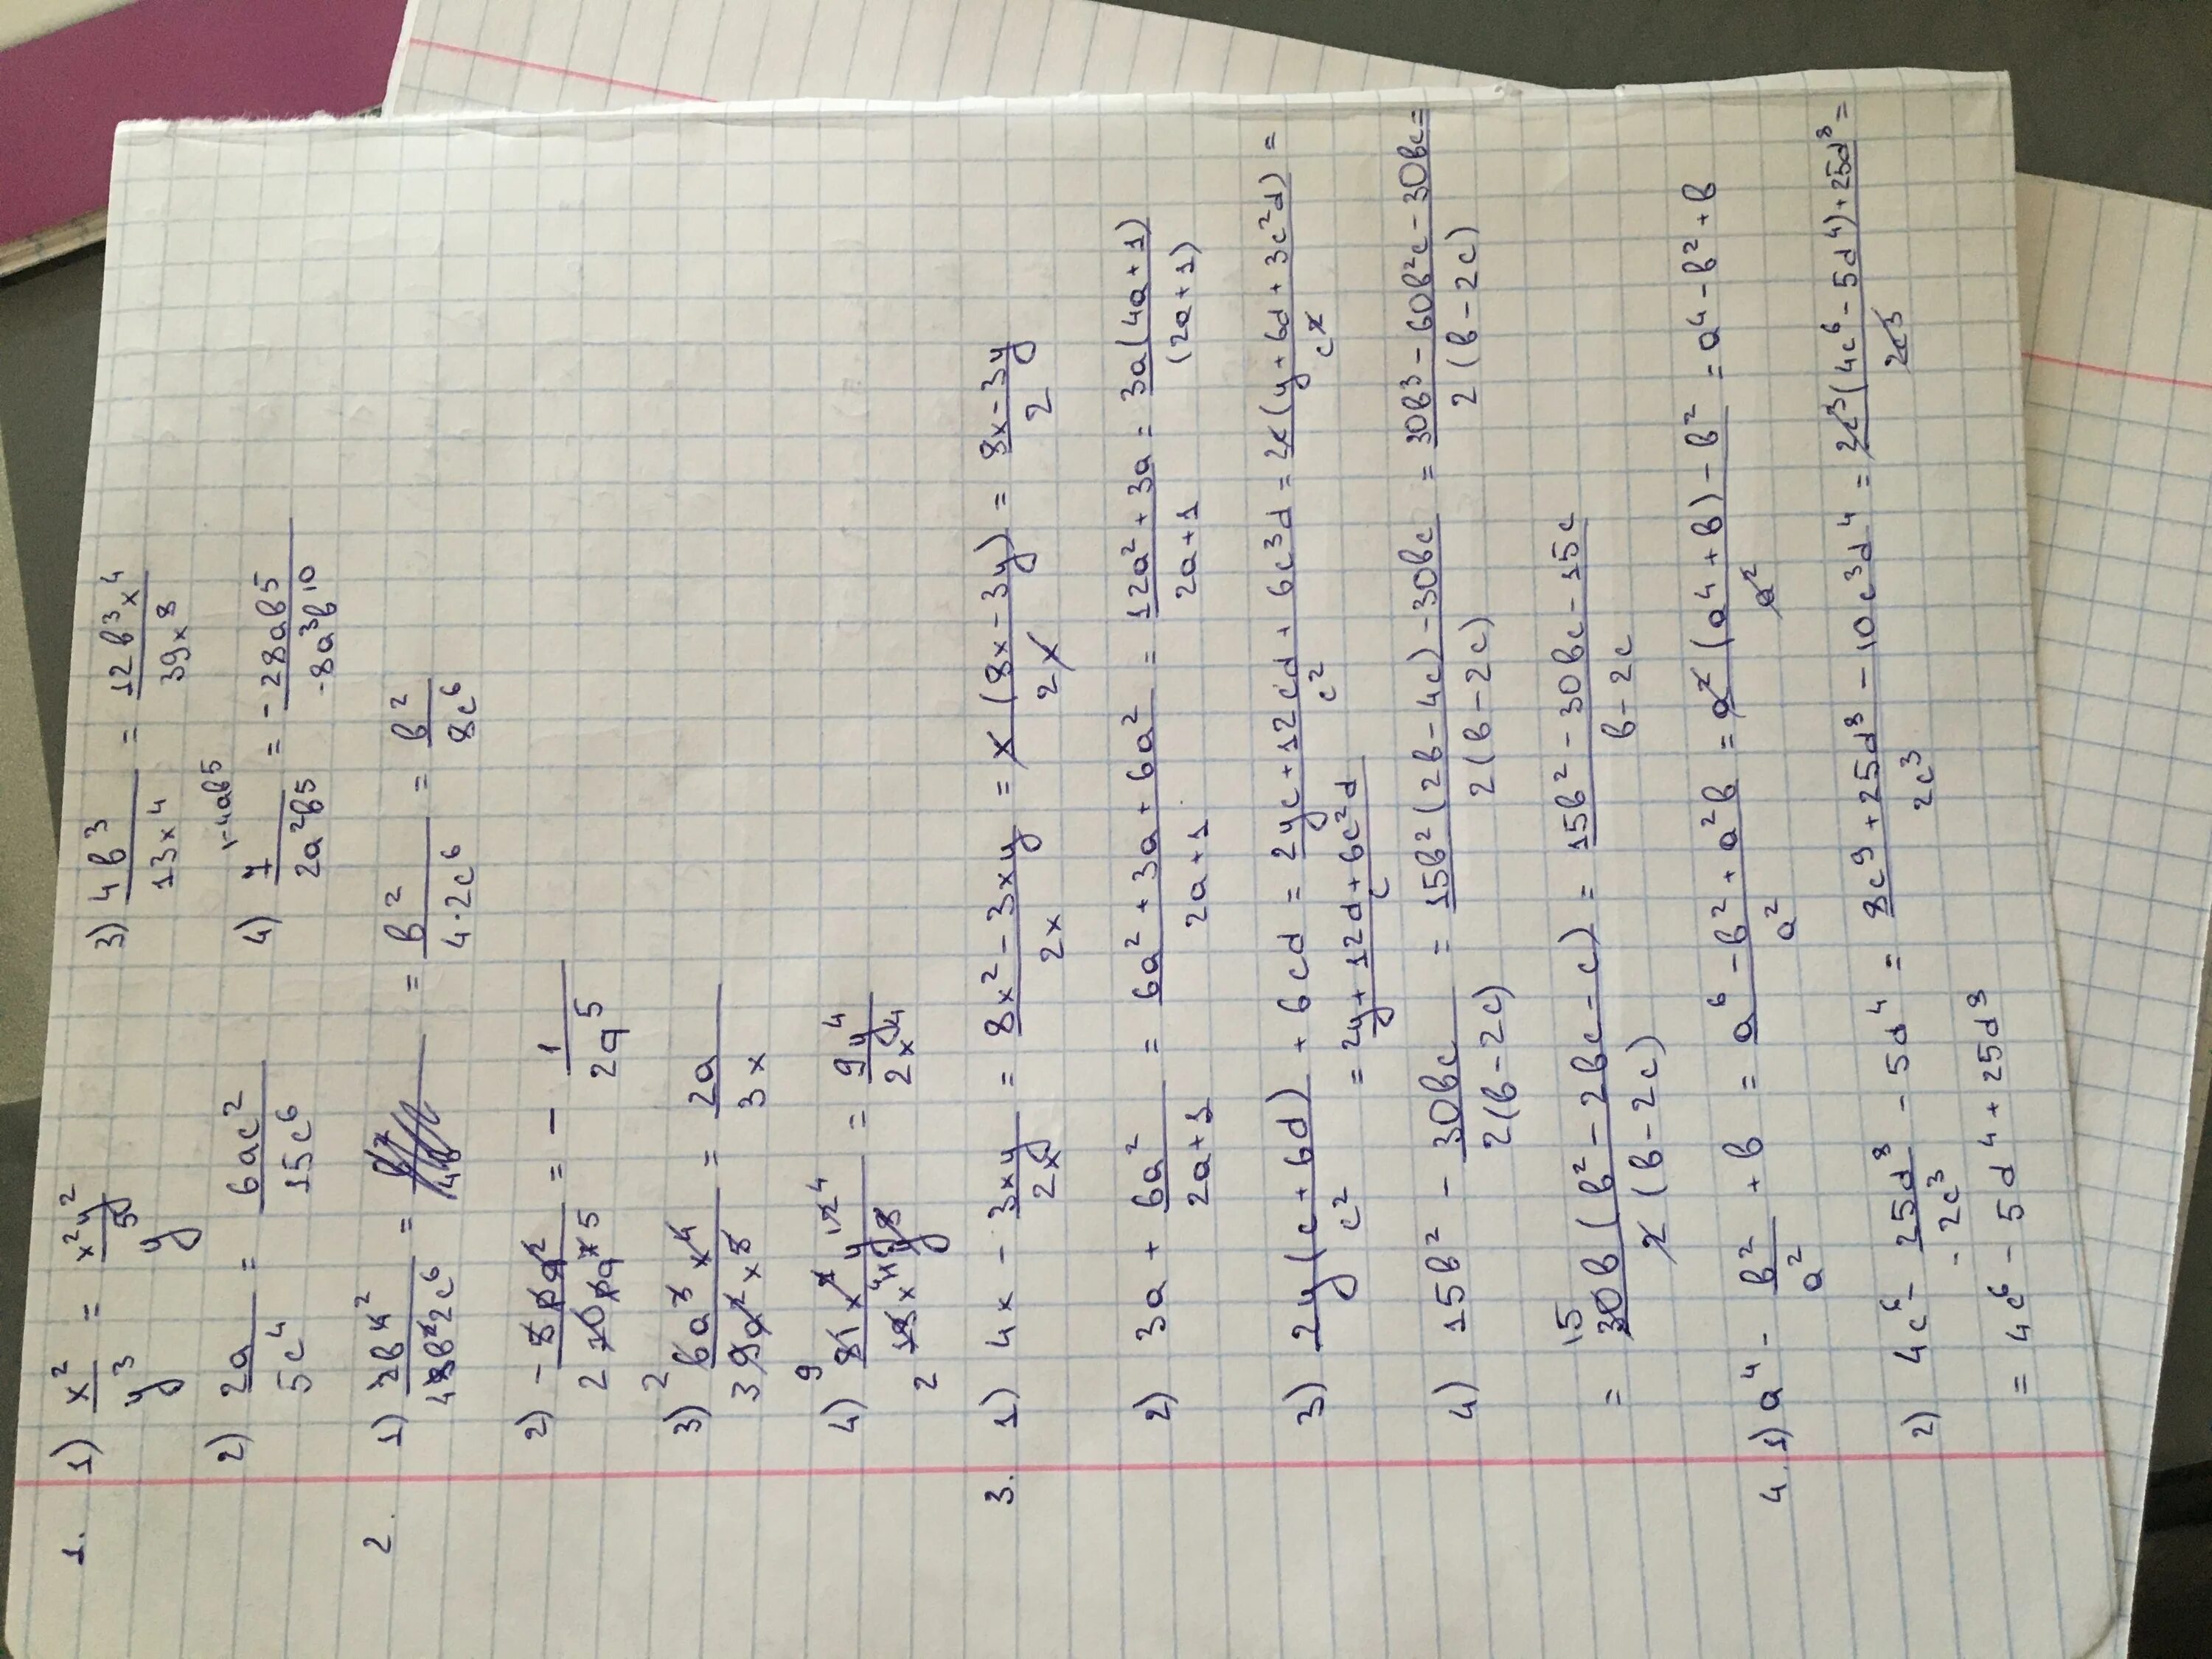 1. 1) x²/y³ = x²y²/y⁵ 3) 4b³/13x⁴ = 12b³x⁴/39x⁸
2) 2a/5c⁴ = 6ac²/15c⁶ 4) 7/2a²b⁵ = -28ab⁵/-8a³b¹⁰
1-4ab5
2. 1) 2b⁴/48b²2c⁶ = = b²/4·2c⁶ = b²/8c⁶
2) = - 1/2a⁵
3) 6a³x⁴/9a²x⁵ = 2a/3x
4) = 9y⁴/2x⁴
3. 1) 4x - 3xy/2x = 8x² - 3xy/2x = x(8x - 3y)/2x = 8x - 3y/2
2) 3a + 6a²/2a+1 = 6a² + 3a + 6a²/2a+1 = 12a² + 3a/2a+1 = 3a(4a+1)/(2a+1)
3) 2y(c+6d)/c² + 6cd = 2yc + 12cd + 6c³d/c² = 2c(y+6d+3c²d)/c² =
= 2y + 12d + 6c²d/c
4) 15b² - 30bc/2(b-2c) = 15b²(2b-4c) - 30bc/2(b-2c) = 30b³ - 60b²c - 30bc/2(b-2c) =
= 15 30b(b² - 2bc - c)/2(b-2c) = 15b² - 30bc - 15c/b-2c
4. 1) a⁴ - b²/a² + b = a⁶ - b² + a²b/a² = a²(a⁴+b) - b²/a² = a⁴ - b² + b
2) 4c⁶ - 25d⁸/-2c³ - 5d⁴ = 8c⁹ + 25d⁸ - 10c³d⁴/2c³ = 2c³(4c⁶ - 5d⁴) + 25d⁸/2c³ =
= 4c⁶ - 5d⁴ + 25d⁸